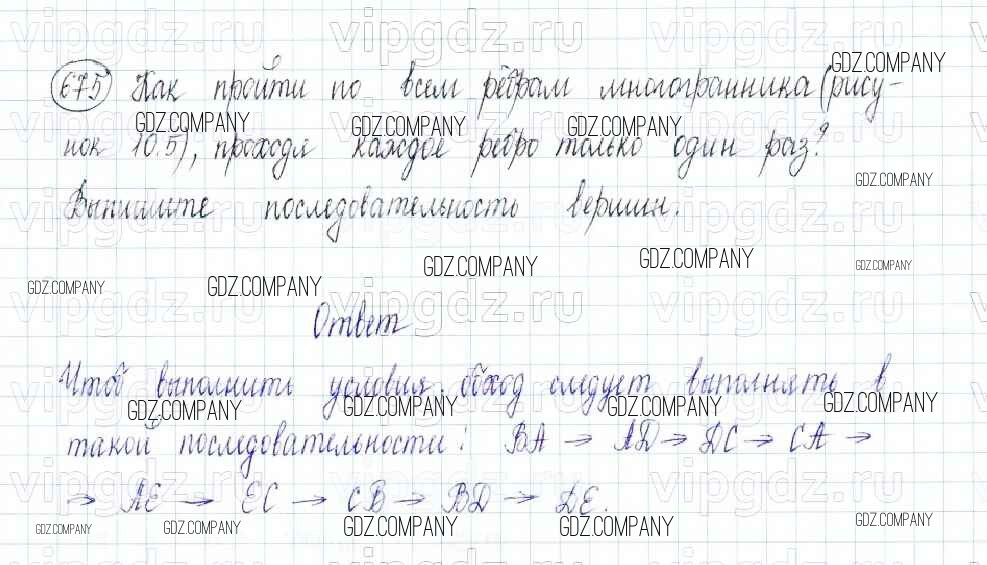 675 Как пройти по всем рёбрам многогранника (рису-
нок 10.5), проходя каждое ребро только один раз?
Выпишите последовательность вершин.
Ответ
Чтоб выполнить условия, обход следует выполнять в
такой последовательности: BA → AD → DC → CA →
→ AE → EC → CB → BD → DE.
vipgdz.ru
GDZ.COMPANY